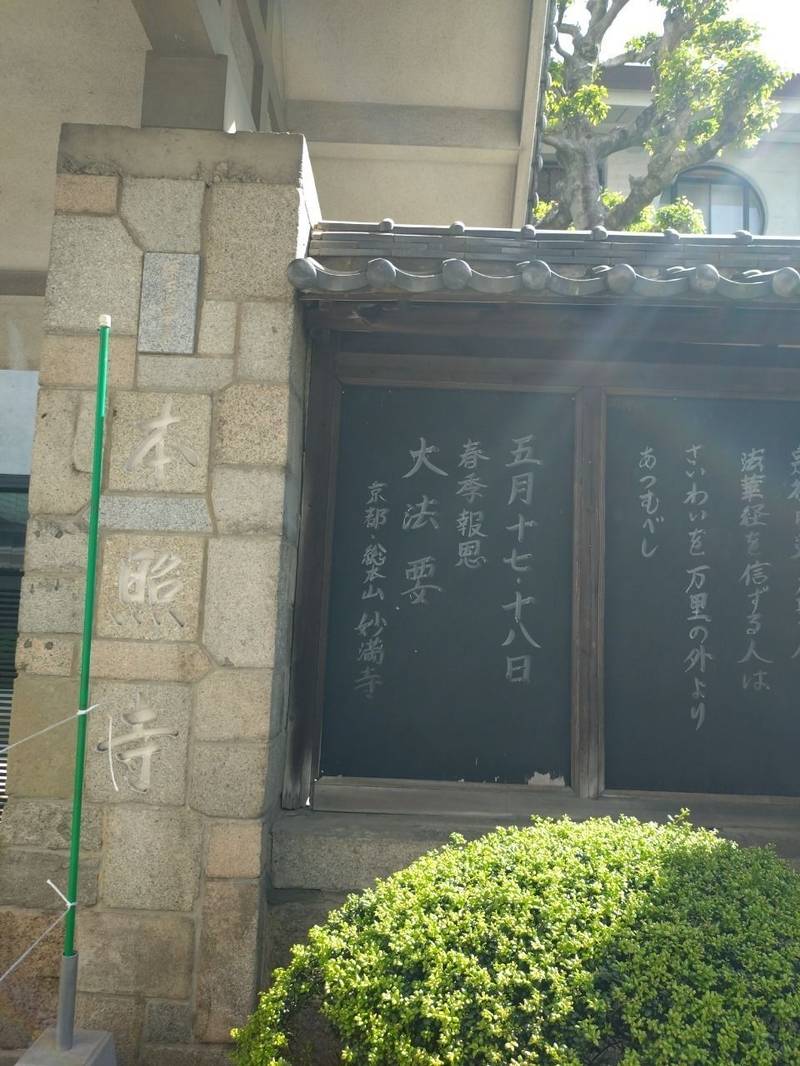 法華経を信ずる人は
さいわいを万里の外より
あつむべし
五月十七・十八日
春季報恩
大法要
京都・総本山 妙満寺
本照寺